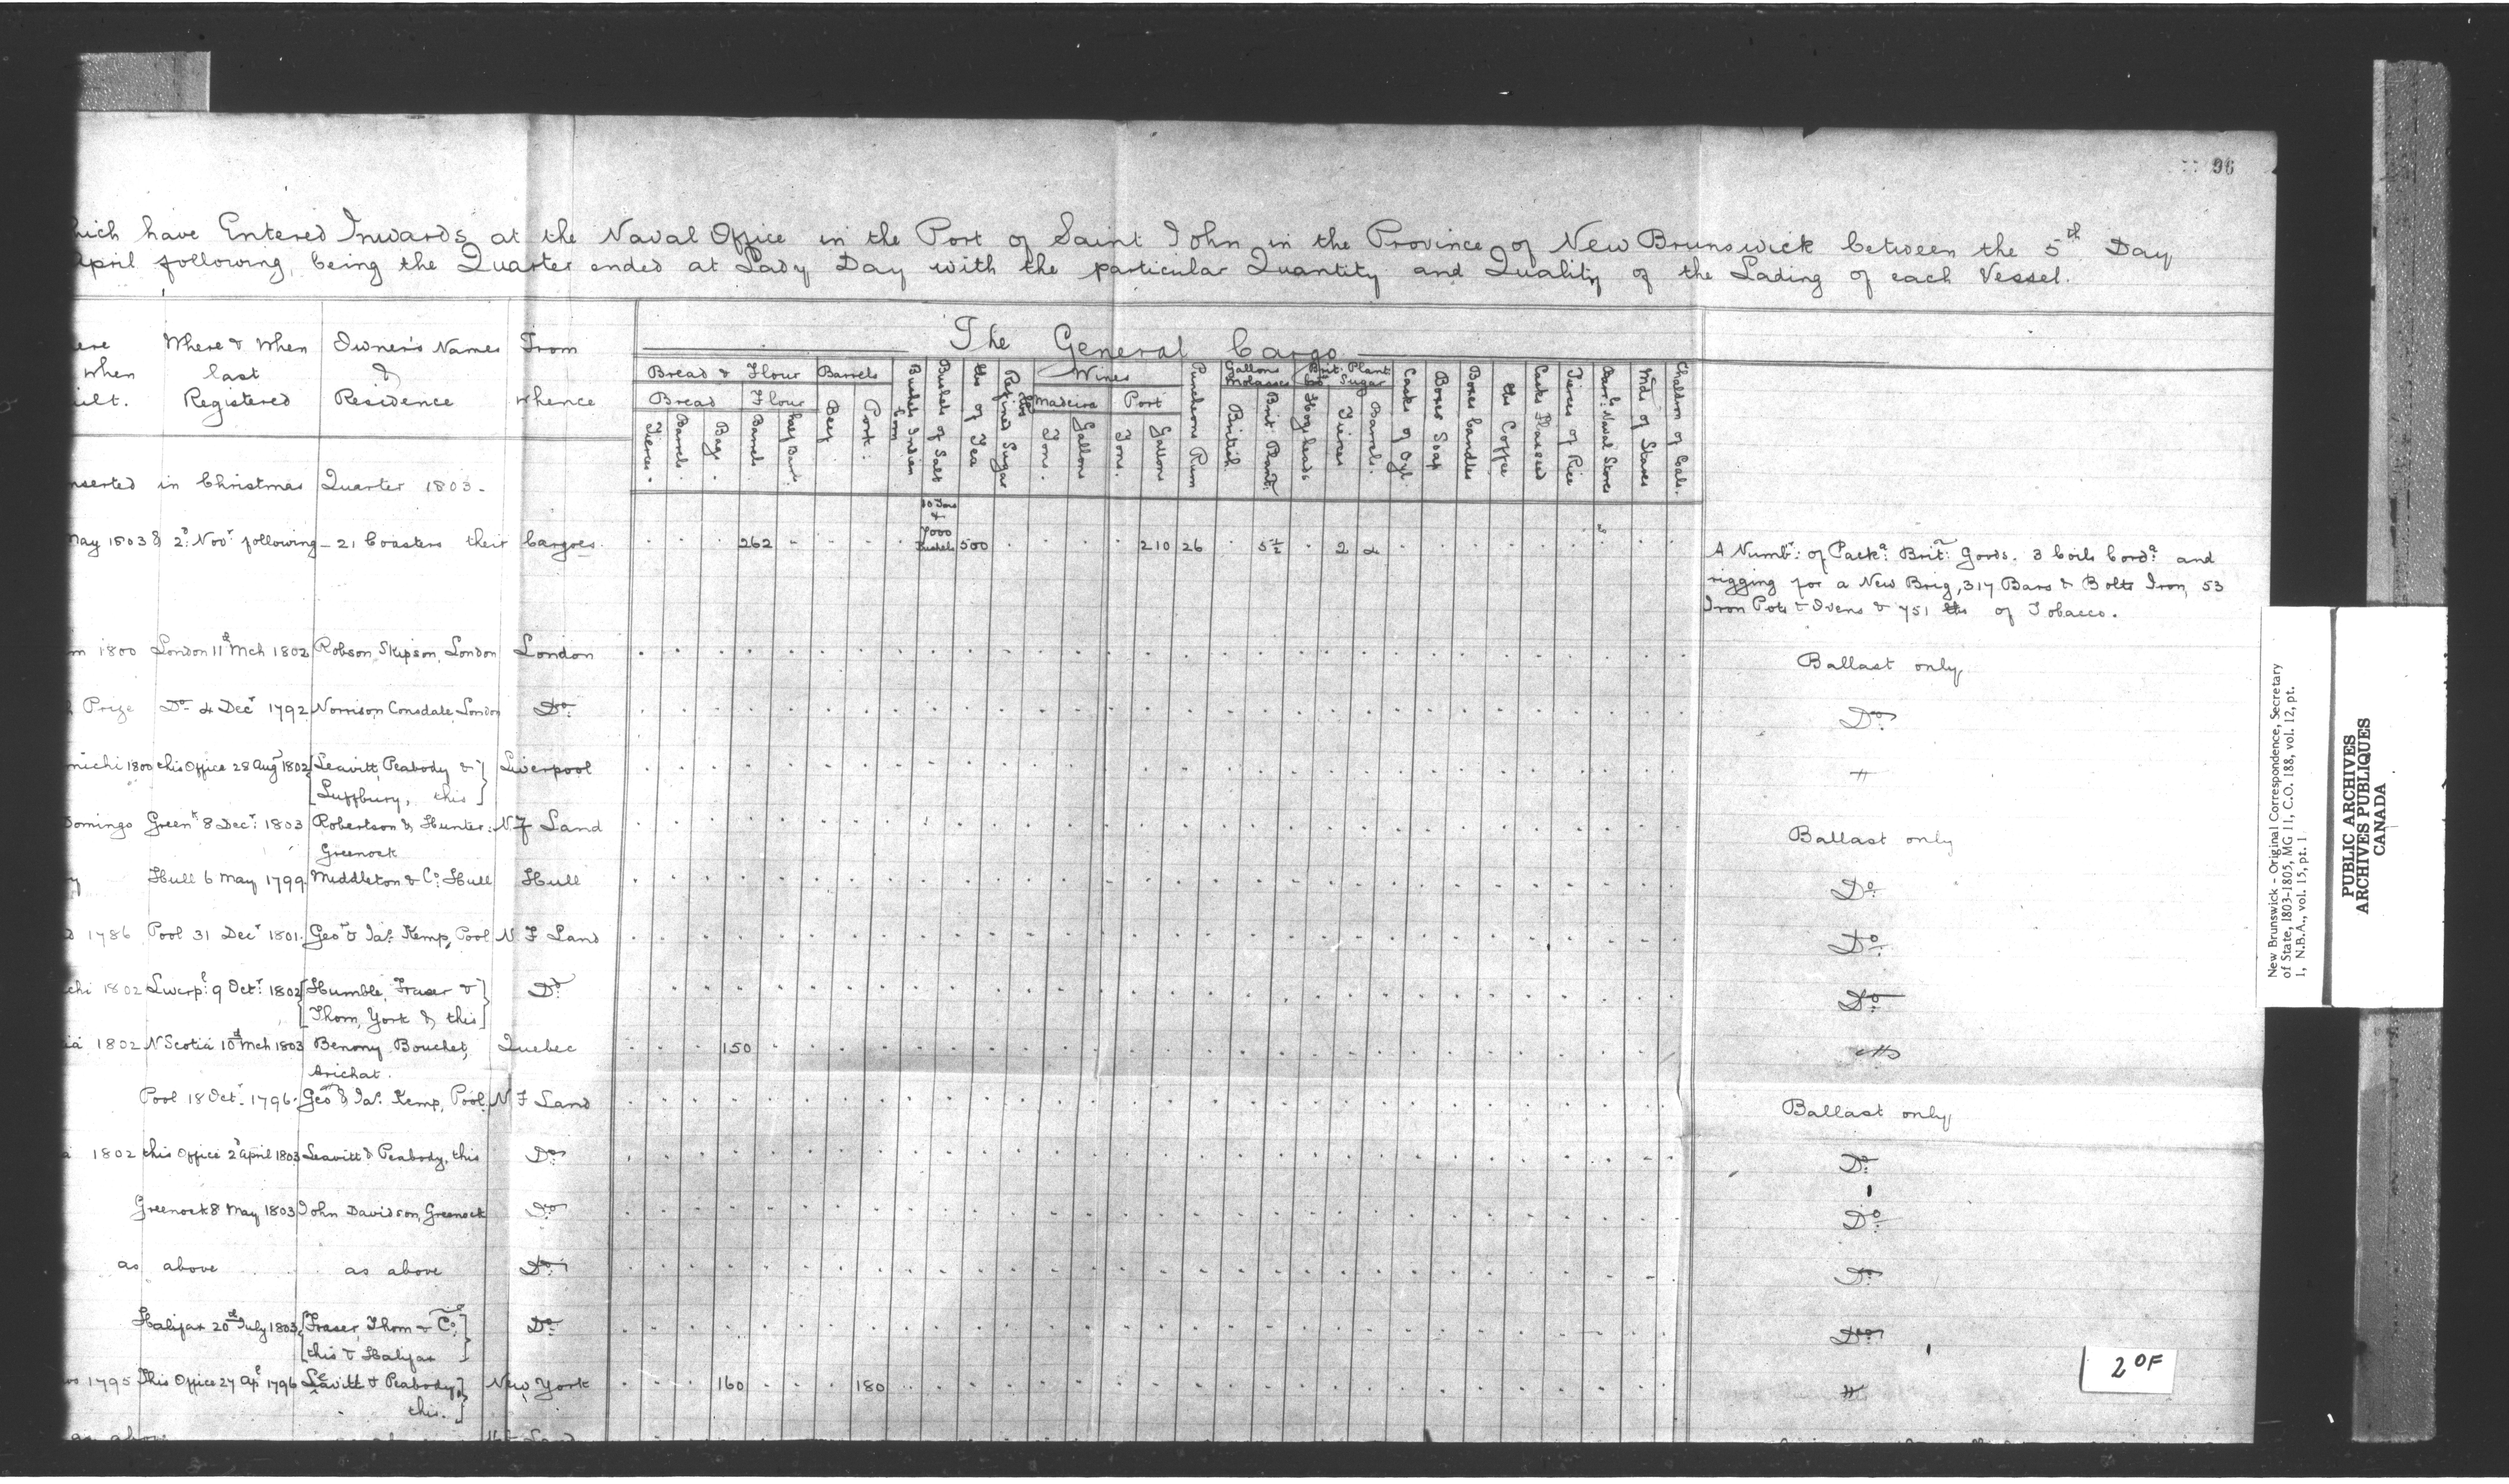 96
hich have Entered Inwards at the Naval Office in the Port of Saint John in the Province of New Brunswick between the 5th Day
April following, being the Quarter ended at Lady Day with the particular Quantity and Quality of the Lading of each Vessel.
ere
when
uilt.
Where & When
last
Registered
Owner's Names
&
Residence
From
whence
The General Cargo
Bread & Flour
Barrels
Bread
Flour
Tierces.
Barrels.
Bags.
Barrels
half Barrs:
Beef
Pork:
Bushels Indian Corn
Bushels of Salt
lbs of Tea
Refined Sugar lbs
Wines
Madeira
Port
Tons.
Gallons
Tons.
Gallons
Puncheons Rum
Gallons Molasses
British
Brit. Plant:
Brit: Plant: Sugar
Hogsheads
Tierces
Barrels.
Casks of Oyl.
Boxes Soap
Boxes Candles
lbs Coffee
Casks Flaxseed
Tierces of Rice
Barr:ls Naval Stores
Md. of Staves
Chaldron of Coals.
nserted in Christmas Quarter 1803.
May 1803 & 2d Novr following - 21 Coasters their Cargoes. 262 7000 Bushels 500 210 26 5½ 2 2
A Numbr: of Packs: Brit: Goods. 3 Coils Corda: and
rigging for a New Brig, 317 Bars & Bolts Iron, 53
Iron Pots & Ovens & 751 lbs of Tobacco.
m 1800 London 11th Mch 1802 Robson Skipson, London London Ballast only
Prize Do 4 Decr 1792 Norrison Consdale, London Do. Do.
michi 1800 this Office 28 Augt 1802 [Leavitt, Peabody & Liverpool
[Luffbury, this]
Domingo Greenk 8 Decr: 1803 Robertson & Hunter: N. F Land Ballast only
Greenock
y Hull 6 May 1799. Middleton & Co: Hull Hull Do.
1786 Pool 31 Decr 1801. Geo & Jas. Kemp, Pool N F Land Do.
chi 1802 Liverp: 9 Octr: 1802 [Humble, Fraser & Do. Do.
[Thom, York & this]
ia 1802 N Scotia 10th Mch 1803 Benony Bouchet, Quebec 150
Arichat.
Pool 18 Octr 1796. Geo & Jas. Kemp, Pool. N F Land Ballast only
1802 this Office 2d April 1803 Leavitt & Peabody, this Do. Do.
Greenock 8 May 1803 John Davidson, Greenock Do. Do.
as above as above Do. Do.
Halifax 20th July 1803 [Fraser, Thom & Co.] Do. Do.
[this & Halifax]
1795 this Office 27 Apl 1796 Leavitt & Peabody,] New York 160 180
this.]
as above
New Brunswick - Original Correspondence, Secretary
of State, 1803-1805, MG 11, C.O. 188, vol. 12, pt.
1, N.B.A., vol. 15, pt. 1
PUBLIC ARCHIVES
ARCHIVES PUBLIQUES
CANADA
2 OF